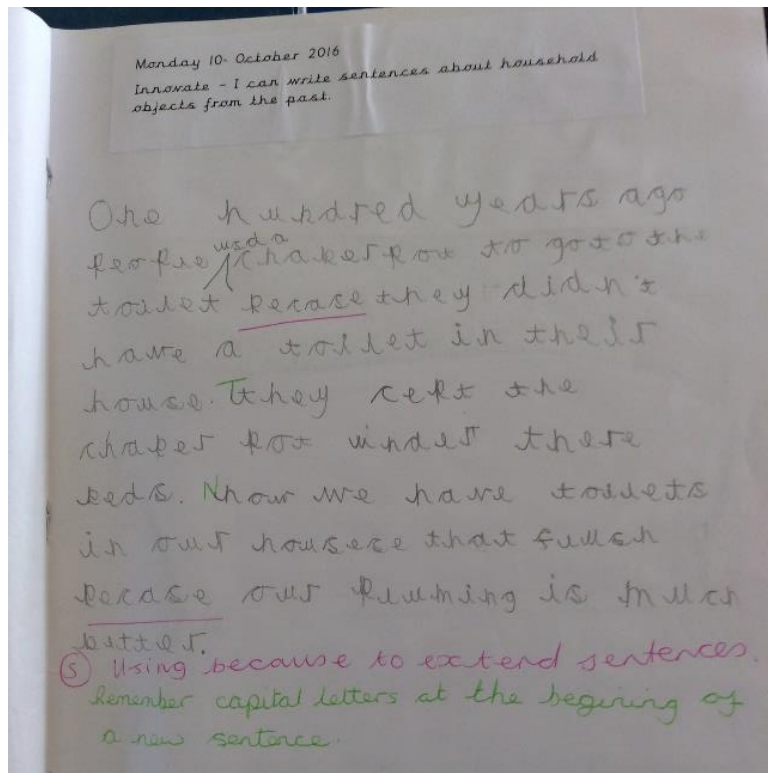 Monday 10. October 2016
Innovate - I can write sentences about household
objects from the past.
One hundred years ago
people usd a chaberpot to go to the
toilet becase they didn't
have a toilet in their
house. They cept the
chaber pot under there
beds. Nhow we have toilets
in our housese that fullsh
becase our pluming is much
bitter.
(S) Using because to extend sentences.
Remember capital letters at the begining of
a new sentence.